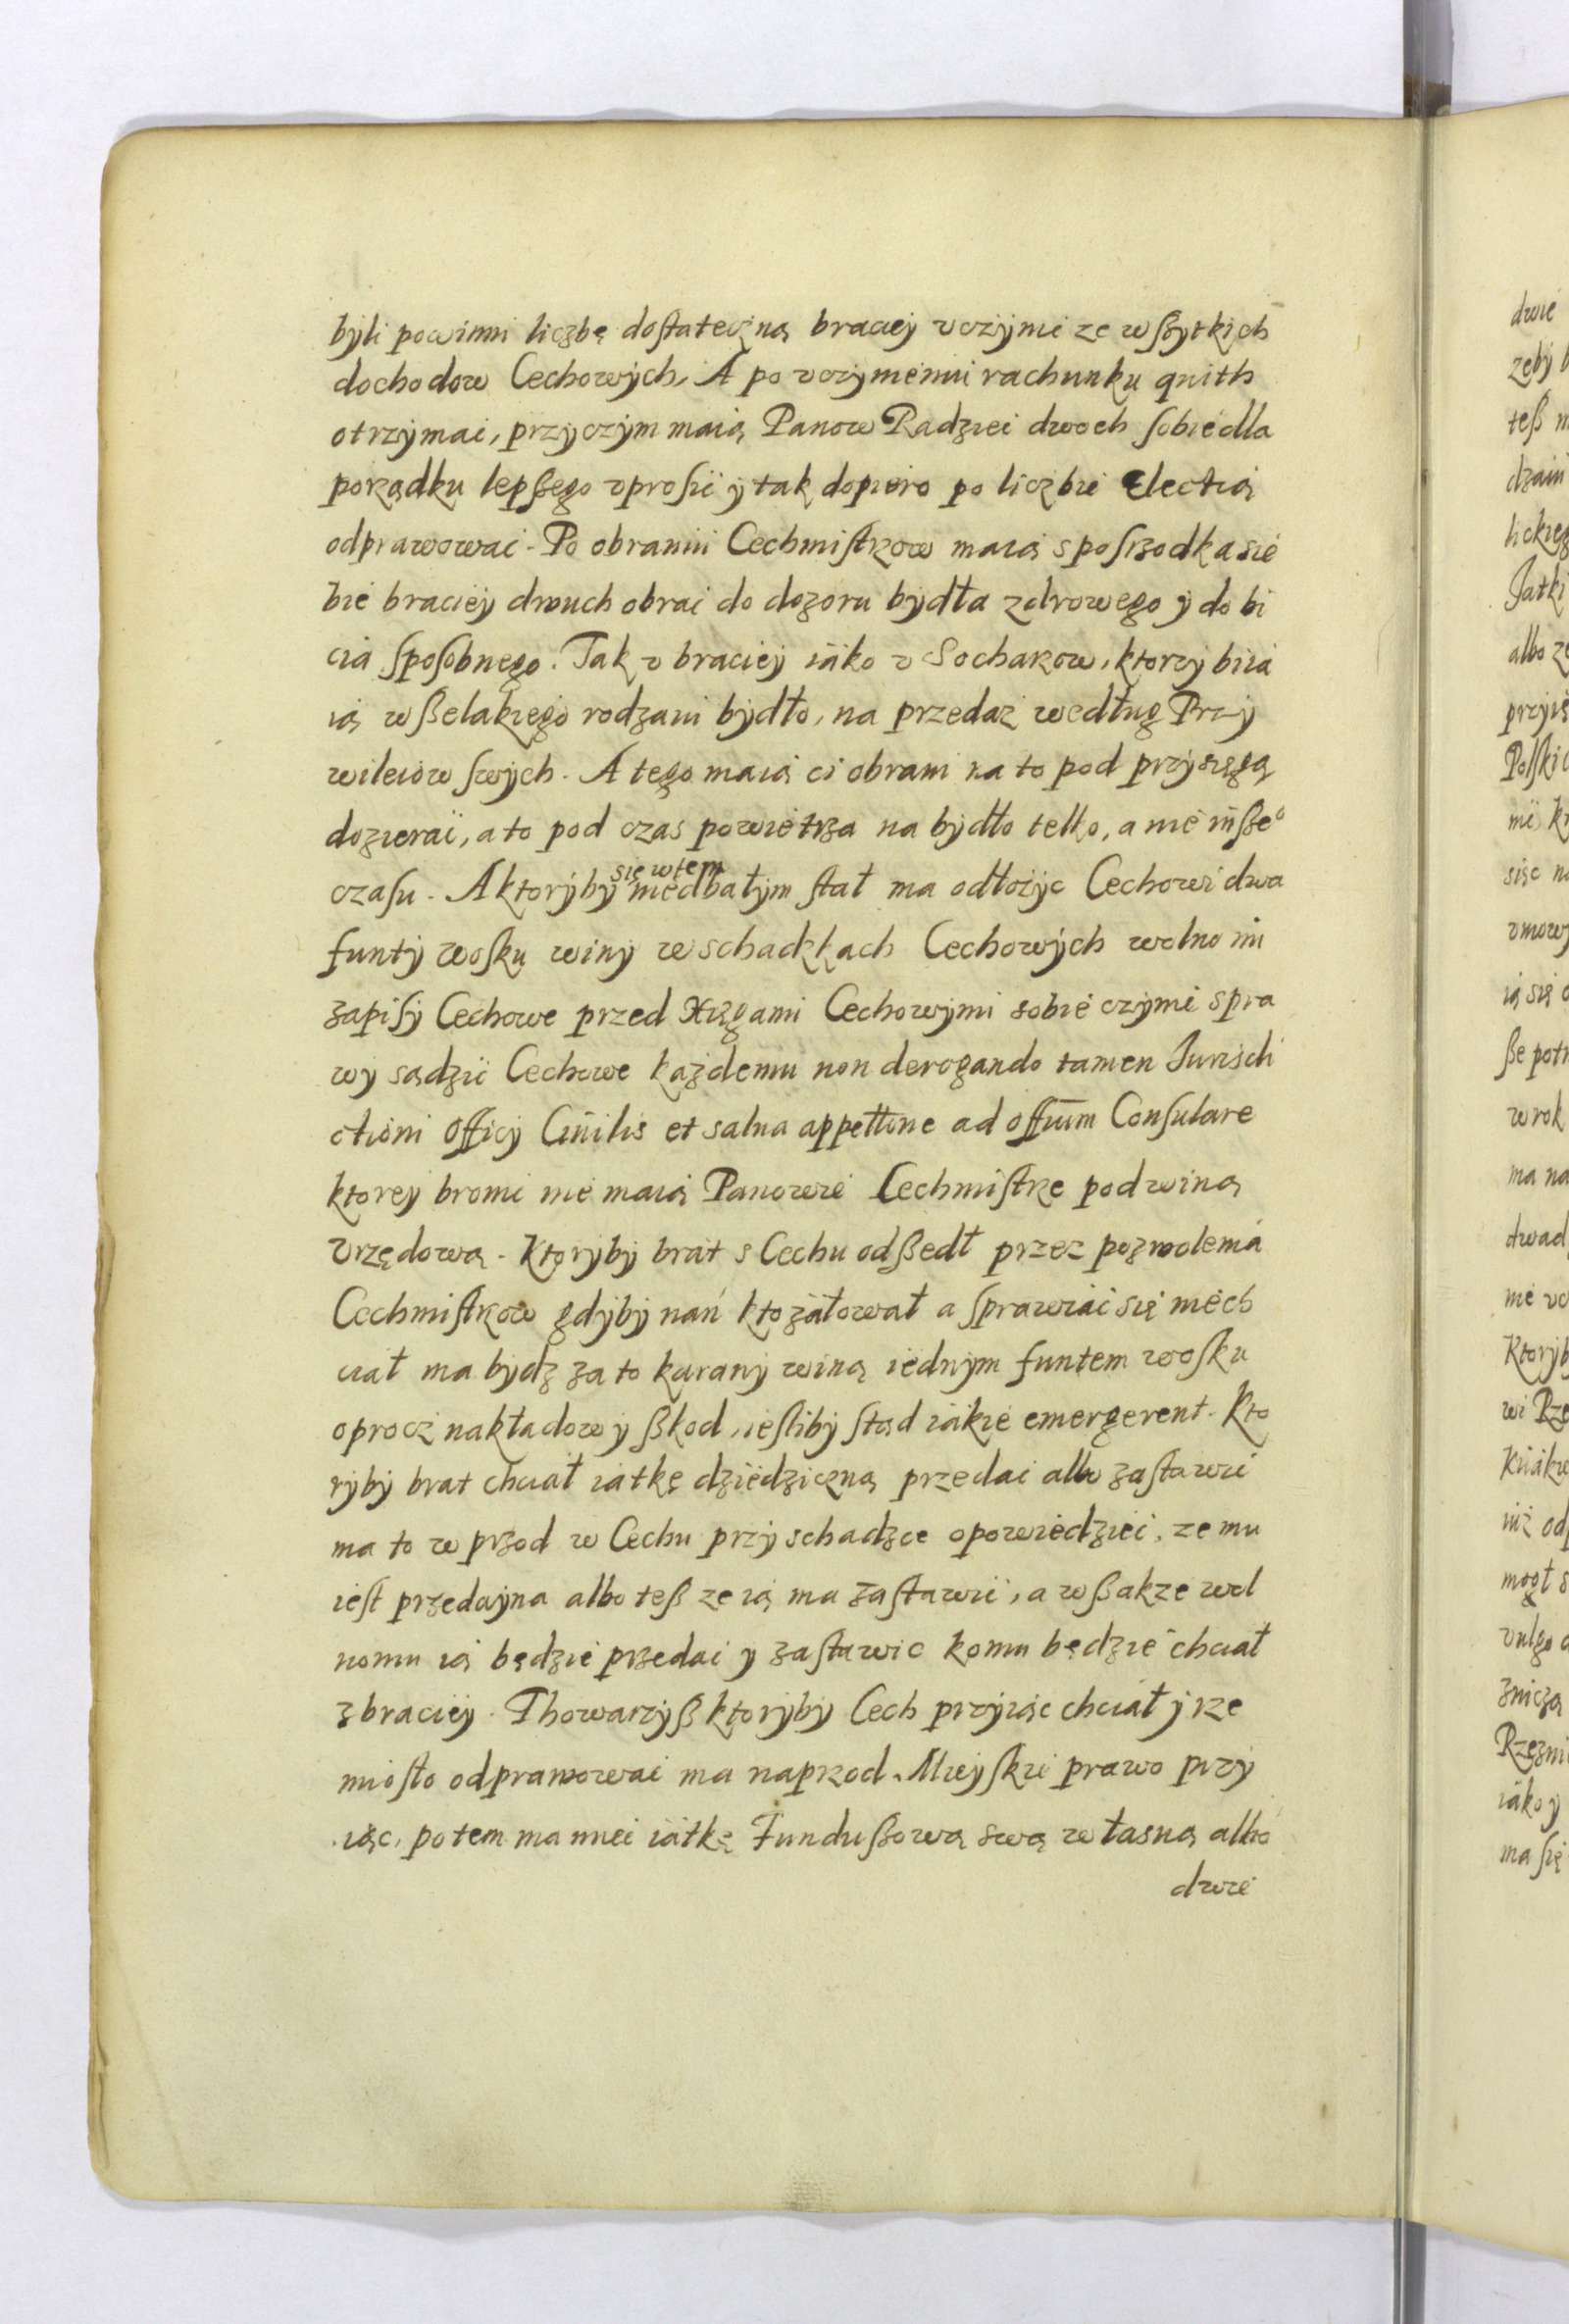 byli powinni liczbę dostateczną braciey vczynić ze wszytkich
dochodow Cechowych, A po vczynieniu rachunku quith
otrzymać, przyczym maią Panow Radziec dwoch sobie dla
porządku lepszego vprosić y tak dopiero po liczbie Electią
odprawować. Po obraniu Cechmistrzow maią spośrzodka sie
bie braciey dwuch obrać do dozoru bydła zdrowego y do bi
cia sposobnego. Tak v braciey iáko v Socharzow, ktorzy biia
ią wszelakiego rodzaiu bydło, na przedaż według Przy
wileiow swych. A tego maią ci obrani na to pod przysięgą
dozierać, a to pod czas powietrza na bydło telko, a nie insze°
czasu. A ktoryby się wtem niedbałym stał ma odłożyc Cechowi dwa
funty wosku winy w schadzkach Cechowych wolno im
zapisy Cechowe przed Xięgami Cechowymi sobie czynić spra
wy sądzić Cechowe każdemu non derogando tamen Jurisdi
ctioni Officij Ciuilis et salua appellone ad offium Consulare
ktorey bronić nie maią Panowie Cechmistrze pod winą
Vrzędową. Ktoryby brat s Cechu odszedł przez pozwolenia
Cechmistrzow gdyby nań kto záłował a sprawiać się niech
ciał ma bydz za to karany winą iednym funtem wosku
oprocz nakładow y szkod, iesliby stąd iákie emergerent. Kto
ryby brat chciał iatkę dziedziczną przedać albo zastawić
ma to w przod w Cechu przy schadzce opowiedzieć, ze mu
iest przedayna albo tesz ze ią ma zastawić, a wszakze wol
nomu ią będzie przedać y zastawic komu będzie chciał
z braciey. Thowarzysz ktoryby Cech przyiąc chciał y rze
miosło odprawować ma naprzod. Mieyskie prawo przy
iąc, potem ma mieć iátkę Funduszową swą własną albo
dwie